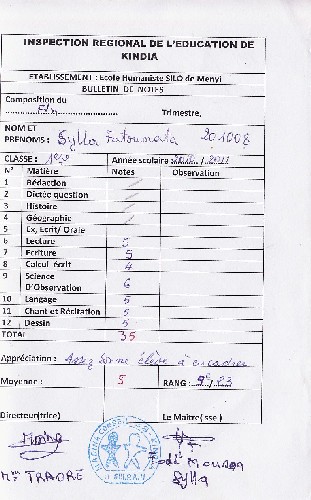 INSPECTION REGIONAL DE L'EDUCATION DE
KINDIA
ETABLISSEMENT : Ecole Humaniste SILO de Menyi
BULLETIN DE NOTES
Composition du
Trimestre,
NOM ET
PRENOMS : Sylla Fatoumata 201008
CLASSE : Année scolaire / 2011
N° Matière Notes Observation
1 Rédaction /
2 Dictée question /
3 Histoire /
4 Géographie /
5 Ex, Ecrit/ Orale
6 Lecture 5
7 Ecriture 5
8 Calcul écrit 4
9 Science
D'Observation 6
10 Langage 5
11 Chant et Récitation 5
12 Dessin 5
TOTAL 35
Appréciation : Assez bonne élève à encadrer
Moyenne : 5 RANG : 9e / 23
Directeur(trice) Le Maitre(sse)
Mme TRAORE
Fodé Moussa
Sylla